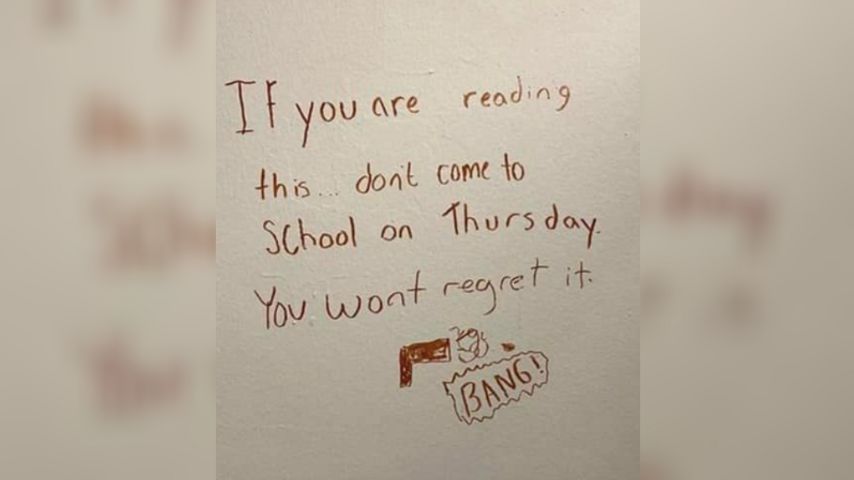 If you are reading
this... don't come to
School on Thursday.
You wont regret it.
BANG!